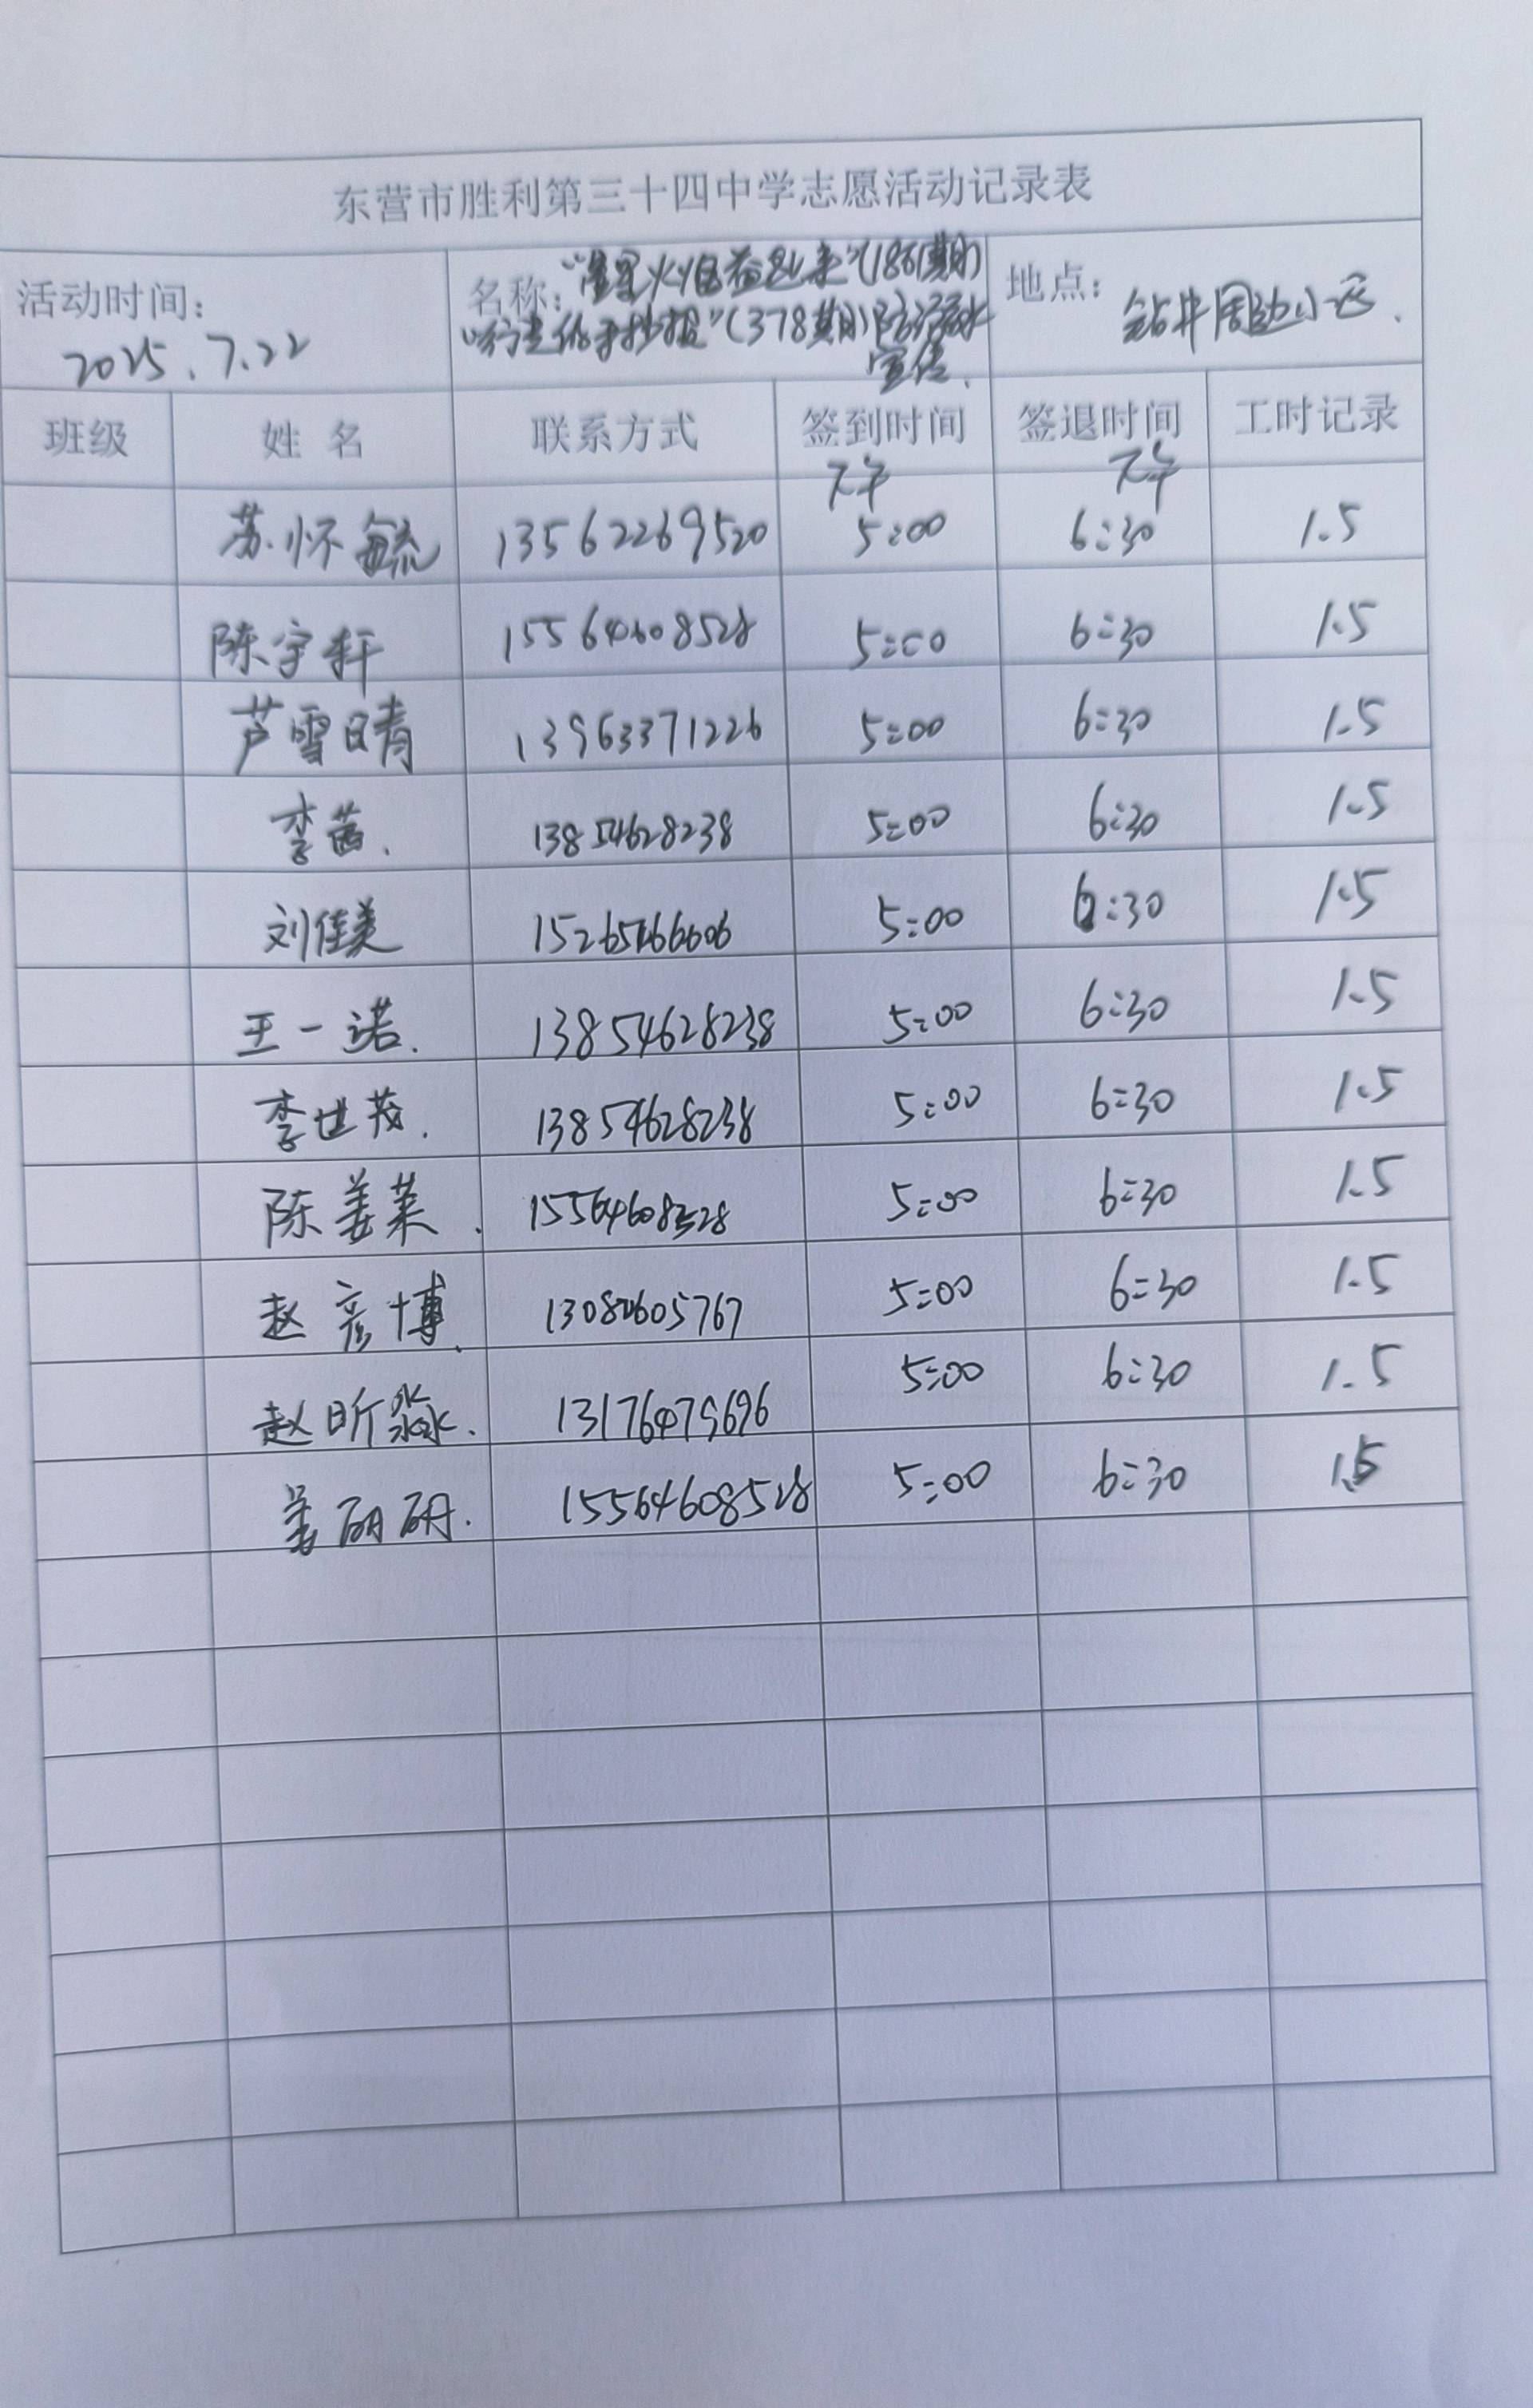 东营市胜利第三十四中学志愿活动记录表
活动时间: 2025.7.22
名称: "星星火焰益起来"(186期)
手抄报"(378期)防溺水
宣传.
地点: 钻井周边小区.
班级 姓名 联系方式 签到时间 签退时间 工时记录
下午 下午
苏怀毓 13562269520 5:00 6:30 1.5
陈宇轩 15564608528 5:00 6:30 1.5
芦雪晴 13963371226 5:00 6:30 1.5
李茜. 13854628238 5:00 6:30 1.5
刘佳美 15265466606 5:00 6:30 1.5
王一诺. 13854628238 5:00 6:30 1.5
李世茂. 13854628238 5:00 6:30 1.5
陈姜莱. 15564608528 5:00 6:30 1.5
赵彦博. 5:00 6:30 1.5
赵昕淼. 13176479696 5:00 6:30 1.5
姜研研. 15564608528 5:00 6:30 1.5